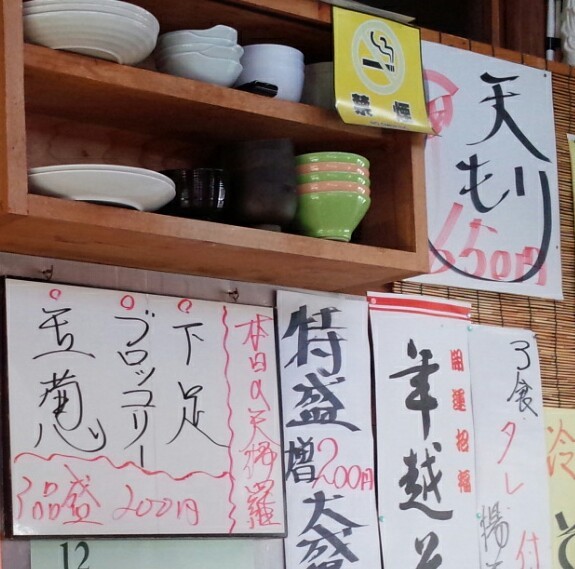 禁煙
天もり
本日の天婦羅
下足
ブロッコリー
玉葱
3品盛 200円
特盛
増200円
大盛
開運招福
年越そ
3食
タレ付
揚
冷
そ
12